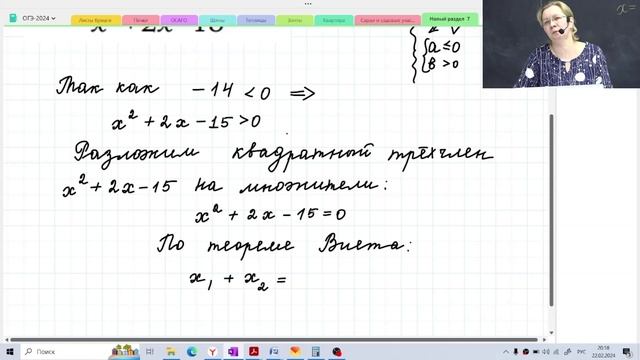 ОГЭ-2024
Листы бумаги
Печки
ОСАГО
Шины
Теплицы
Зонты
Квартира
Новый раздел 7
x² + 2x - 15
a ≤ 0
b > 0
x =
Так как -14 < 0 ⇒
x² + 2x - 15 > 0
Разложим квадратный трёхчлен
x² + 2x - 15 на множители:
x² + 2x - 15 = 0
По теореме Виета:
x₁ + x₂ =
Поиск
РУС
20:18
22.02.2024